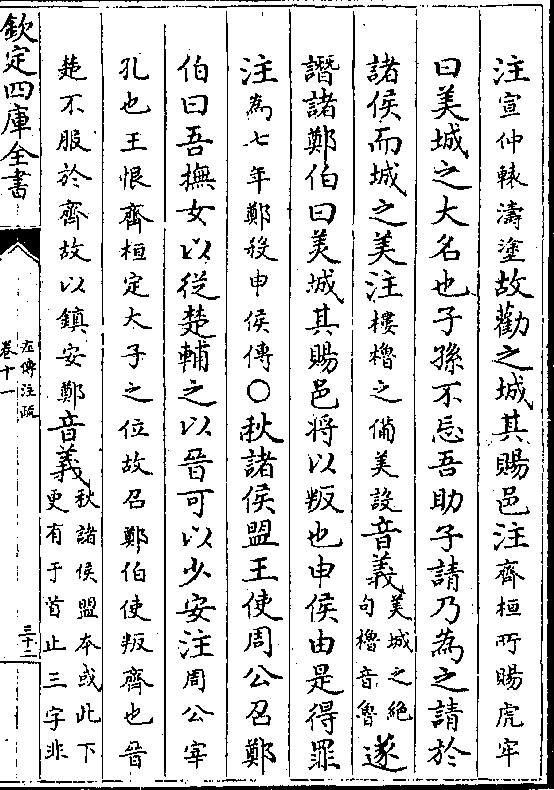 注宣仲轅濤塗故勸之城其賜邑注齊桓所賜虎牢
曰美城之大名也子孫不忘吾助子請乃為之請於
諸侯而城之美注樓櫓之備美設音義美城之絶句櫓音魯遂
譖諸鄭伯曰美城其賜邑将以叛也申侯由是得罪
注為七年鄭殺申侯傳○秋諸侯盟王使周公召鄭
伯曰吾撫女以從楚輔之以晉可以少安注周公宰
孔也王恨齊桓定大子之位故召鄭伯使叛齊也晉
楚不服於齊故以鎮安鄭音義秋諸侯盟本或此下更有于首止三字非
欽定四庫全書
左傳注疏
卷十一
三十二